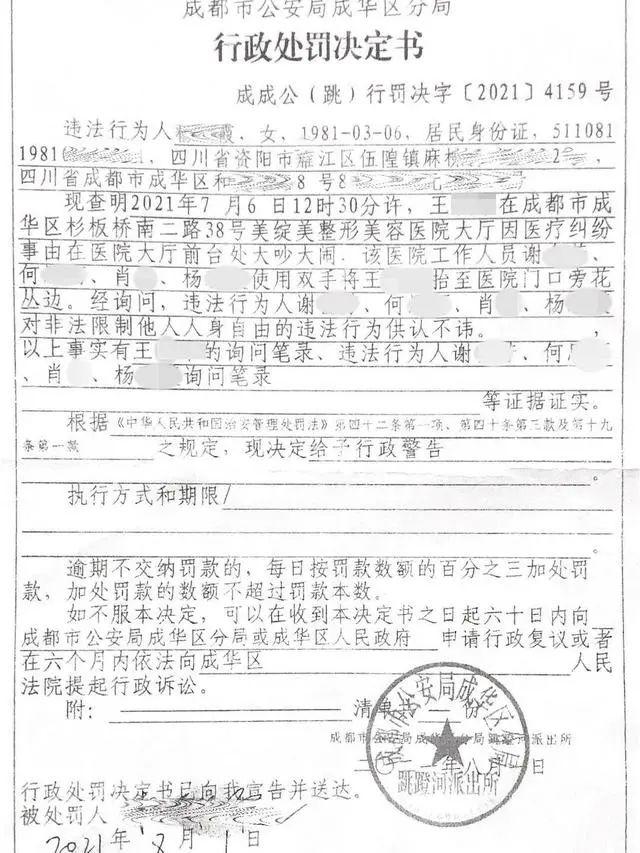 成都市公安局成华区分局
行政处罚决定书
成成公（跳）行罚决字〔2021〕4159号
违法行为人 霞，女，1981-03-06，居民身份证，511081
1981 ，四川省资阳市雁江区伍隍镇麻 2 ，
四川省成都市成华区和 8号8 元
现查明2021年7月6日12时30分许，王 在成都市成
华区杉板桥南二路38号美绽美整形美容医院大厅因医疗纠纷
事由在医院大厅前台处大吵大闹。该医院工作人员谢 、
何 、肖 、杨 使用双手将王 抬至医院门口旁花
丛边。经询问，违法行为人谢 、何 、肖 、杨
对非法限制他人人身自由的违法行为供认不讳。
以上事实有王 的询问笔录、违法行为人谢 、何
、肖 、杨 询问笔录
等证据证实。
根据《中华人民共和国治安管理处罚法》第四十二条第一项、第四十条第三款及第十九
条第一款 之规定，现决定给予行政警告
。
执行方式和期限/
。
逾期不交纳罚款的，每日按罚款数额的百分之三加处罚
款，加处罚款的数额不超过罚款本数。
如不服本决定，可以在收到本决定书之日起六十日内向
成都市公安局成华区分局或成华区人民政府 申请行政复议或者
在六个月内依法向成华区 人民
法院提起行政诉讼。
附： 清单共 份
成都市公安局成华区分局跳蹬河派出所
二 一年八月 日
成都市公安局成华区分局
跳蹬河派出所
行政处罚决定书已向我宣告并送达。
被处罚人
2021年8月1日